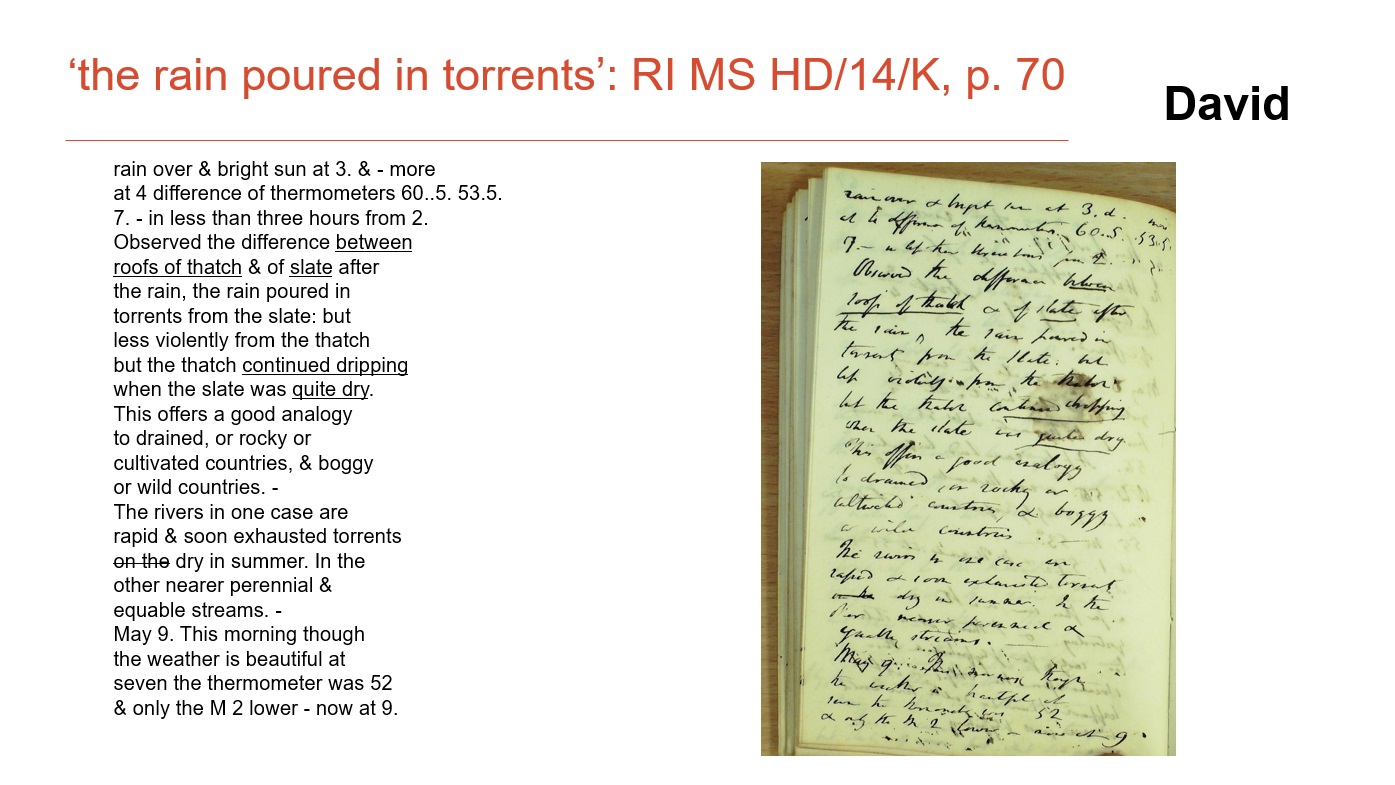 ‘the rain poured in torrents’: RI MS HD/14/K, p. 70
David
rain over & bright sun at 3. & - more
at 4 difference of thermometers 60..5. 53.5.
7. - in less than three hours from 2.
Observed the difference between
roofs of thatch & of slate after
the rain, the rain poured in
torrents from the slate: but
less violently from the thatch
but the thatch continued dripping
when the slate was quite dry.
This offers a good analogy
to drained, or rocky or
cultivated countries, & boggy
or wild countries. -
The rivers in one case are
rapid & soon exhausted torrents
on the dry in summer. In the
other nearer perennial &
equable streams. -
May 9. This morning though
the weather is beautiful at
seven the thermometer was 52
& only the M 2 lower - now at 9.
rain over & bright sun at 3. &. more
at 4 difference of thermometers. 60..5. 53.5.
7. - in less than three hours from 2.
Observed the difference between
roofs of thatch & of slate after
the rain, the rain poured in
torrents from the slate: but
less violently from the thatch
but the thatch continued dripping
when the slate was quite dry.
This offers a good analogy
to drained, or rocky or
cultivated countries, & boggy
or wild countries. -
The rivers in one case are
rapid & soon exhausted torrents
on the dry in summer. In the
other nearer perennial &
equable streams. -
May 9. This morning though
the weather is beautiful at
seven the thermometer was 52
& only the M 2 lower - now at 9.